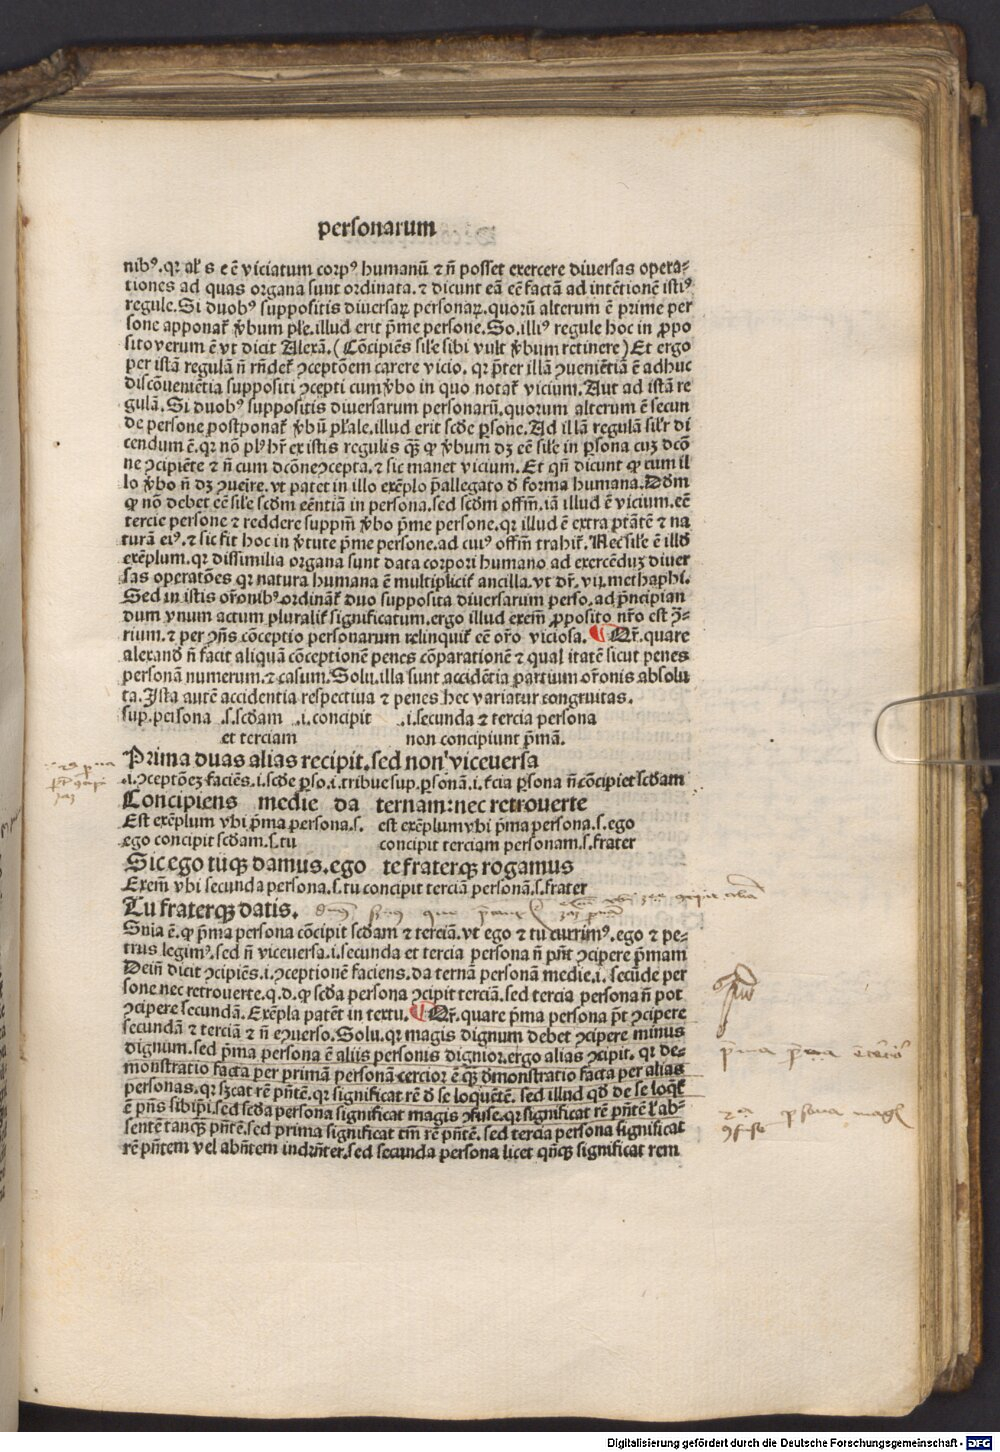 personarum
nibꝰ.qꝛ al's e ē viciatum corpꝰ humanū ⁊ n̄ posset exercere diuersas opera⸗
tiones ad quas organa sunt ordinata.⁊ dicunt eā eē factā ad intētionē istiꝰ
regule.Si duobꝰ suppositis diuersaꝝ personaꝝ.quorū alterum ē prime per
sone apponat̄ v̓bum pl̓e.illud erit p̄me persone.So.illiꝰ regule hoc in ꝓpo
sito verum ē vt dicit Alexā.(Cōcipiēs sil̓e sibi vult v̓bum retinere)Et ergo
per istā regulā n̄ rn̄det̄ ꝯceptōem carere vicio.qꝛ p̄ter illā ꝯueniētiā ē adhuc
discōueniētia suppositi ꝯcepti cum v̓bo in quo notat̄ vicium.Aut ad istā re
gulā.Si duobꝰ suppositis diuersarum personarū.quorum alterum ē secun
de persone postponat̄ v̓bū pl̓ale.illud erit scd̓e ꝑsone.Ad illā regulā sil̓r di
cendum ē.qꝛ nō plꝰ hr̄ ex istis regulis qꝫ̄ ꝙ v̓bum dꝫ eē sil̓e in ꝑsona cuꝫ dcō
ne ꝯcipiēte ⁊ n̄ cum dcōne ꝯcepta.⁊ sic manet vicium.Et qn̄ dicunt ꝙ cum il
lo v̓bo n̄ dꝫ ꝯueīre.vt patet in illo exēplo p̄allegato d̓ forma humana.Dōm
ꝙ nō debet eē sil̓e scd̄m eēntiā in persona.sed scd̄m offm̄.iā illud ē vicium.eē
tercie persone ⁊ reddere suppm̄ v̓bo p̄me persone.qꝛ illud ē extra ptātē ⁊ na
turā eiꝰ.⁊ sic fit hoc in v̓tute p̄me persone.ad cuiꝰ offm̄ trahit̄.Nec sil̓e ē illd̓
exēplum.qꝛ dissimilia organa sunt data corpori humano ad exercēduꝫ diuer
sas operatōes qꝛ natura humana ē multiplicit̄ ancilla.vt dr̄.vij.methaphi.
Sed in istis or̄onibꝰ ordināt̄ duo supposita diuersarum perso.ad p̄ncipian
dum vnum actum pluralit̄ significatum.ergo illud exem̄ ꝓposito nr̄o est ꝯ̄⸗
rium.⁊ per ꝯn̄s cōceptio personarum relinquit̄ eē or̄o viciosa. ¶Qr̄.quare
alexand̓ n̄ facit aliquā cōceptionē penes cōparationē ⁊ qualitatē sicut penes
personā numerum.⁊ casum.Solu.illa sunt accidētia partium or̄onis absolu
ta.Ista autē accidentia respectiua ⁊ penes hec variatur congruitas.
sup.persona .s.scd̄am .i.concipit .i.secunda ⁊ tercia persona
et terciam non concipiunt p̄mā.
Prima duas alias recipit.sed non viceuersa
.i.ꝯceptōeꝫ faciēs.i.scd̓e ꝑso.i.tribue sup.ꝑsonā.i.t̓cia ꝑsona n̄ cōcipiet scd̄am
Concipiens medie da ternam:nec retrouerte
Est exēplum vbi p̄ma persona.s. est exēplum vbi p̄ma persona.s.ego
ego concipit scd̄am.s.tu concipit terciam personam.s.frater
Sic ego tuqꝫ damus.ego te fraterqꝫ rogamus
Exem̄ vbi secunda persona.s.tu concipit terciā personā.s.frater
Tu fraterqꝫ datis.
Snīa ē.ꝙ p̄ma persona cōcipit scd̄am ⁊ terciā.vt ego ⁊ tu currimꝰ.ego ⁊ pe⸗
trus legimꝰ.sed n̄ viceuersa.i.secunda et tercia persona n̄ pn̄t ꝯcipere p̄mam
Dein̄ dicit ꝯcipiēs.i.ꝯceptionē faciens.da ternā personā medie.i.secūde per
sone nec retrouerte.q.d.ꝙ scd̓a persona ꝯcipit terciā.sed tercia personā n̄ pot
ꝯcipere secundā.Exēpla patēt in textu. ¶Qr̄.quare p̄ma persona pt̄ ꝯcipere
secundā ⁊ terciā ⁊ n̄ eꝯuerso.Solu.qꝛ magis dignum debet ꝯcipere minus
dignum.sed p̄ma persona ē alijs personis dignior.ergo alias ꝯcipit. qꝛ de⸗
monstratio facta per primā personā cercior ē qꝫ̄ d̓monstratio facta per alias
personas.qꝛ sꝫcat rē pn̄tē.qꝛ significat rē d̓ se loquētē. sed illud qd̓ de se loqt̄
ē pn̄s sibip̄i.sed scd̓a persona significat magis ꝯfuse.qꝛ significat rē pn̄tē l̓ ab⸗
sentē tanqꝫ pn̄tē.sed prima significat tm̄ rē pn̄tē. sed tercia persona significat
rē pn̄tem vel abn̄tem indrn̄ter.sed secunda persona licet qn̄qꝫ significat rem
Digitalisierung gefördert durch die Deutsche Forschungsgemeinschaft - DFG